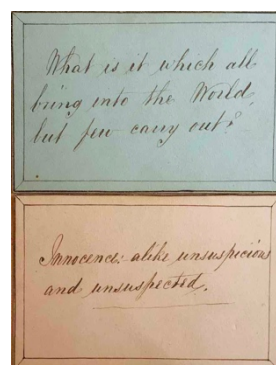 What is it which all
bring into the World,
but few carry out?
Innocence: alike unsuspicious
and unsuspected.